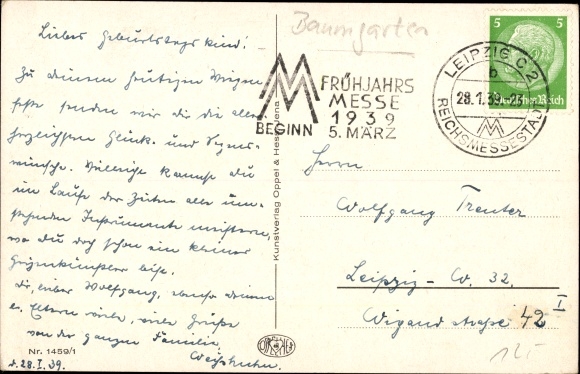 Liebes Geburtstagskind!
Zu deinem heutigen Wiegen
feste senden wir dir die aller
herzlichsten Glück- und Segens-
wünsche. Vielleicht kannst du
im Laufe der Zeiten alle um-
stehenden Instrumente meistern,
wo du doch schon ein kleiner
Geigenkünstler bist.
Dir, lieber Wolfgang, ebenso deinen
l. Eltern viele, viele Grüße
von der ganzen Familie
Nr. 1459/1
d. 28. I. 39.
Kunstverlag Oppel & Hess, Jena
Baumgarten
MM
BEGINN
FRÜHJAHRS
MESSE
1939
5. MÄRZ
LEIPZIG C 2
b
28.1.39.-23
REICHSMESSESTADT
5 5
Deutsches Reich
Herrn
Wolfgang Trenter
Leipzig - W. 32.
Wigandstraße 42 I
12,-